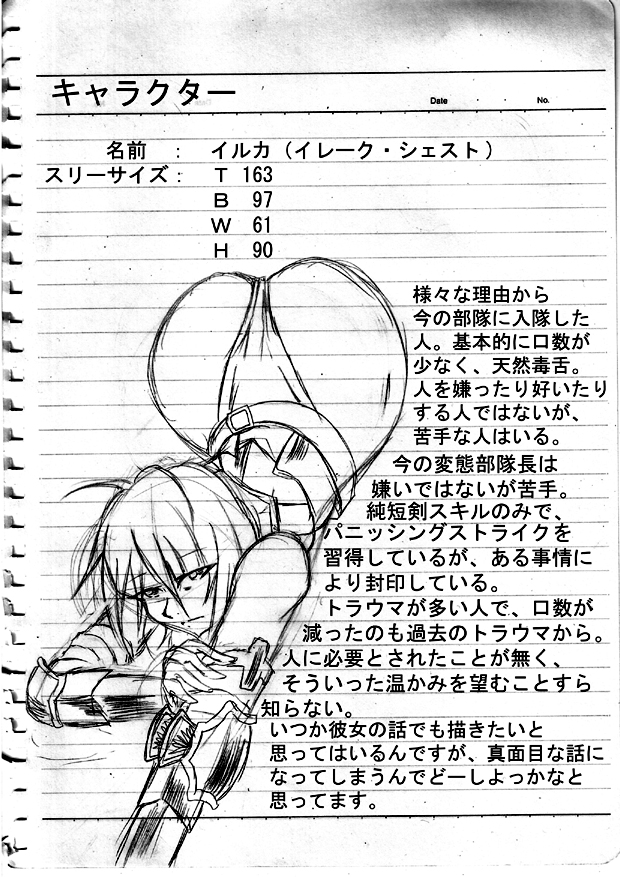 キャラクター
Date ・ ・ No.
名前 ： イルカ（イレーク・シェスト）
スリーサイズ： T 163
B 97
W 61
H 90
様々な理由から
今の部隊に入隊した
人。基本的に口数が
少なく、天然毒舌。
人を嫌ったり好いたり
する人ではないが、
苦手な人はいる。
今の変態部隊長は
嫌いではないが苦手。
純短剣スキルのみで、
パニッシングストライクを
習得しているが、ある事情に
より封印している。
トラウマが多い人で、口数が
減ったのも過去のトラウマから。
人に必要とされたことが無く、
そういった温かみを望むことすら
知らない。
いつか彼女の話でも描きたいと
思ってはいるんですが、真面目な話に
なってしまうんでどーしよっかなと
思ってます。